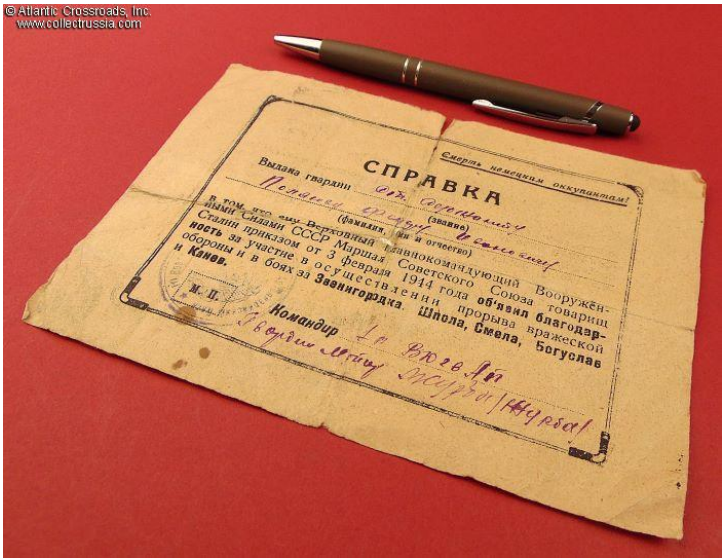 © Atlantic Crossroads, Inc.
www.collectrussia.com
Смерть немецким оккупантам!
СПРАВКА
Выдана гвардии
(звание)
(фамилия, имя и отчество)
в том, что ему Верховный Главнокомандующий Вооружён-
ными Силами СССР Маршал Советского Союза товарищ
Сталин приказом от 3 февраля 1944 года объявил благодар-
ность за участие в осуществлении прорыва вражеской
обороны и в боях за Звенигородка, Шпола, Смела, Богуслав
и Канев.
М. П.
Командир
Гвардии /Журба/